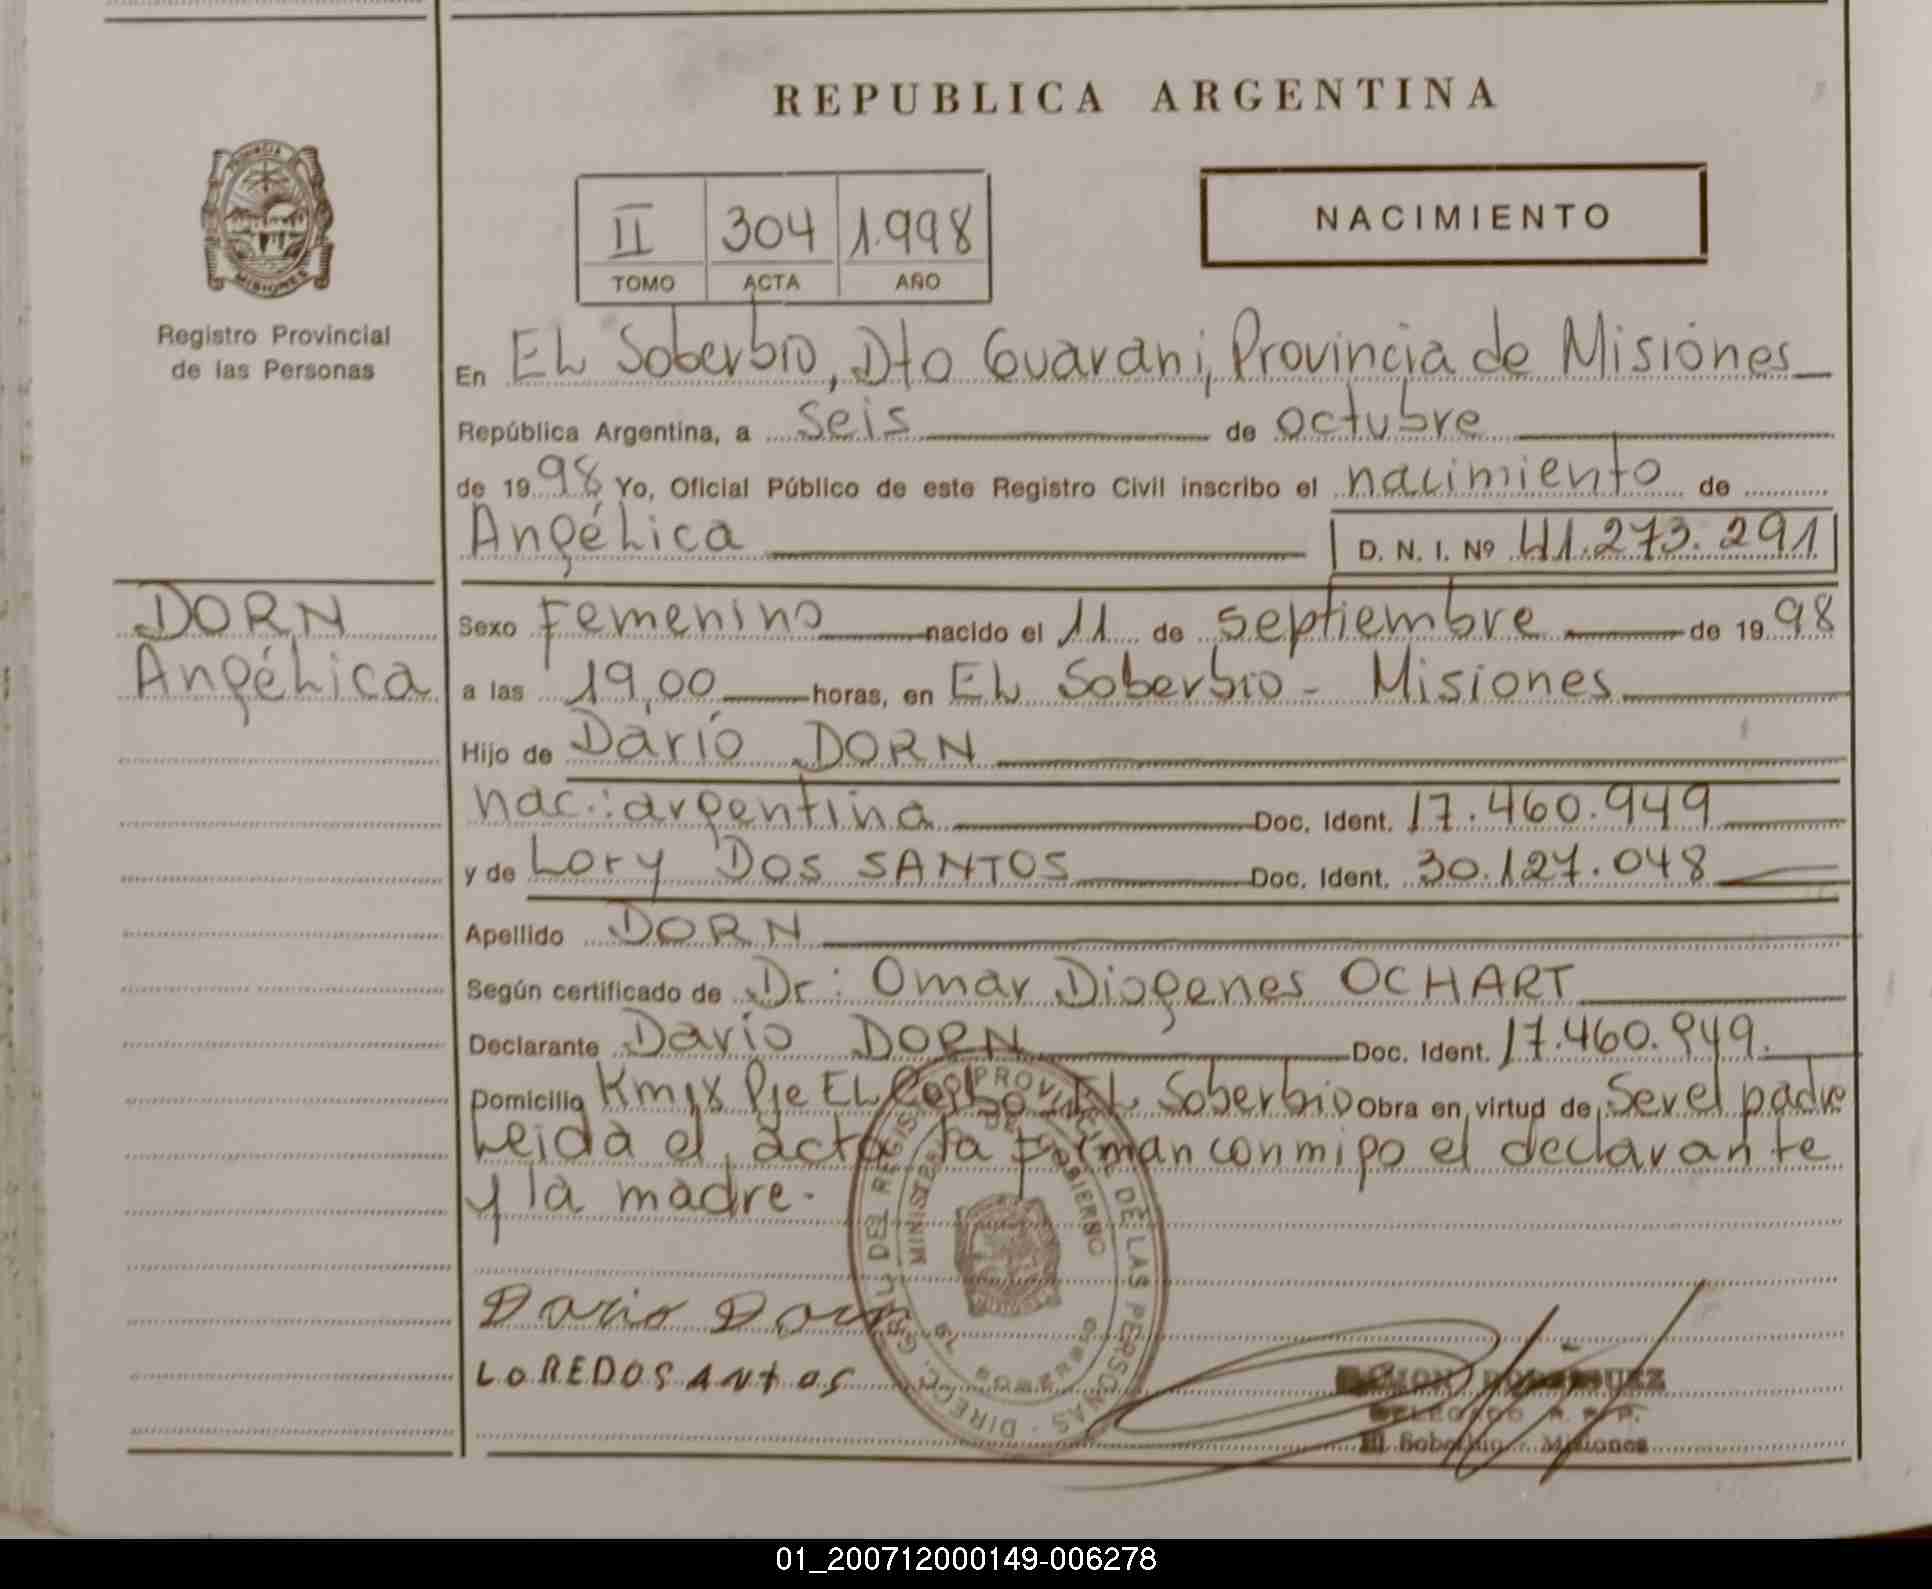 REPUBLICA ARGENTINA
PROVINCIA
MISIONES
Registro Provincial
de las Personas
II 304 1.998
TOMO ACTA AÑO
NACIMIENTO
En EL Soberbio, Dto Guarani, Provincia de Misiones
República Argentina, a seis de octubre
de 1998 Yo, Oficial Público de este Registro Civil inscribo el nacimiento de
Angélica D. N. I. Nº 41.273.291
DORN
Angélica
Sexo Femenino nacido el 11 de septiembre de 1998
a las 19,00 horas, en EL Soberbio - Misiones
Hijo de Darío DORN
nac.: argentina Doc. Ident. 17.460.949
y de Lory DOS SANTOS Doc. Ident. 30.127.048
Apellido DORN
Según certificado de Dr: Omar Diogenes OCHART
Declarante Darío DORN Doc. Ident. 17.460.949.
Domicilio Pje EL EL Soberbio Obra en virtud de Ser el padre
Leida el acta la firman conmigo el declarante
y la madre.
Dario Dorn
LOREDOSANtOS
DIRECC. GRAL. DEL REGISTRO PROVINCIAL DE LAS PERSONAS
MINISTERIO DE GOBIERNO
DELEGADO R. P. P.
El Soberbio - Misiones
01_200712000149-006278